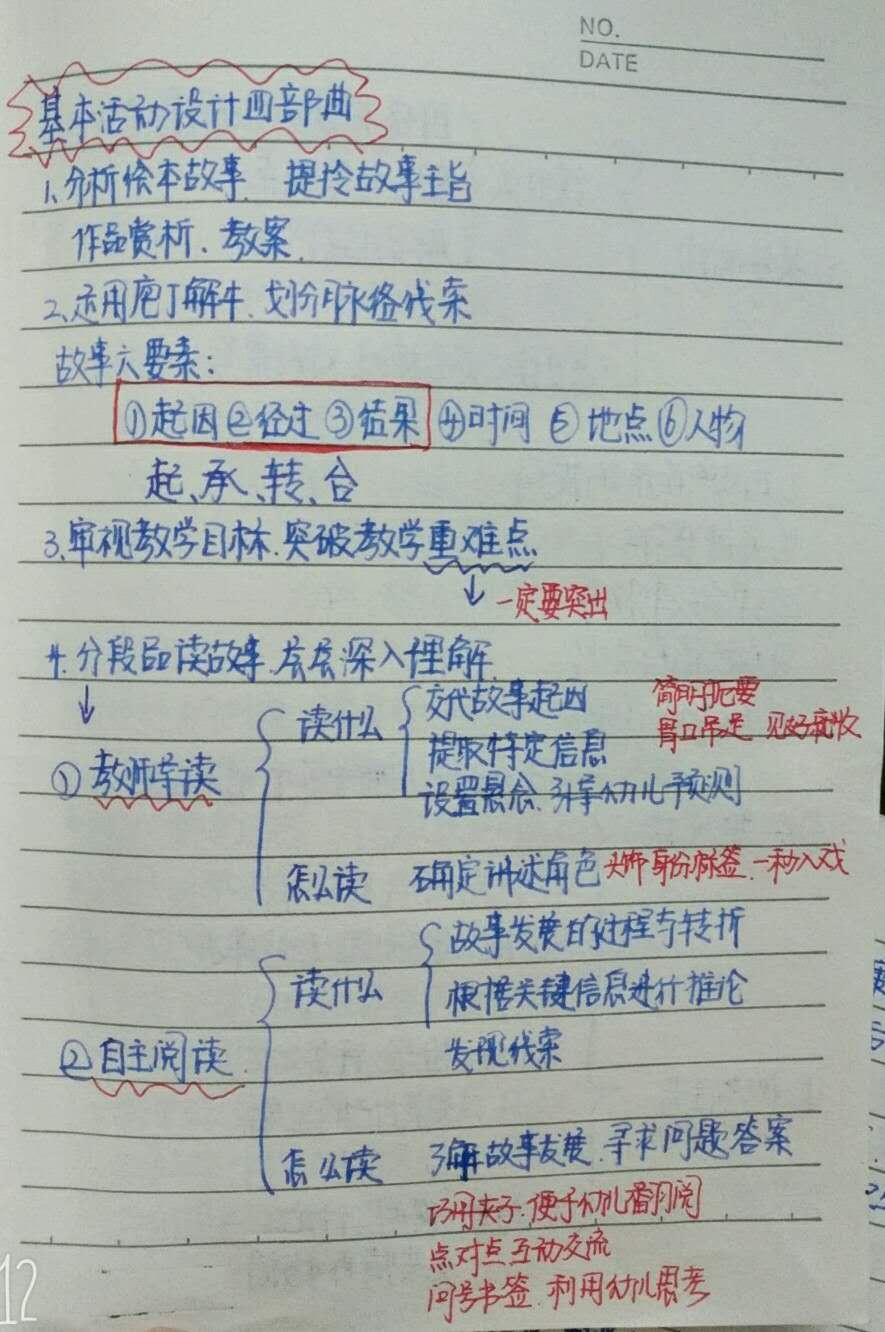 NO.
DATE
基本活动设计四部曲
1、分析绘本故事、提拎故事主旨
作品赏析、教案、
2、运用庖丁解牛、划分脉络线索
故事六要素：
①起因②经过③结果④时间⑤地点⑥人物
起、承、转、合
3、审视教学目标、突破教学重难点
一定要突出
4、分段品读故事、层层深入理解
读什么 交代故事起因 简明扼要
提取特定信息 胃口吊足 见好就收
①教师导读
设置悬念、引导幼儿预测
怎么读 确定讲述角色 头饰身份标签、一秒入戏
故事发展的过程与转折
读什么 根据关键信息进行推论
②自主阅读 发现线索
怎么读 了解故事发展、寻求问题答案
巧用夹子、便于幼儿翻阅
点对点互动交流
问号书签、利用幼儿思考
12